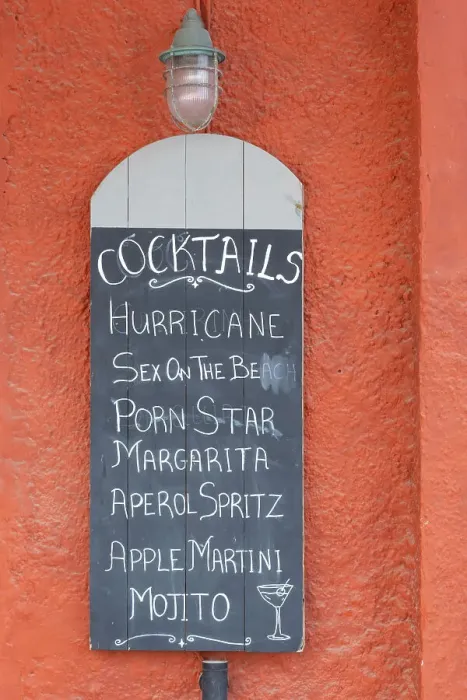 COCKTAILS
HURRICANE
SEX ON THE BEACH
PORN STAR
MARGARITA
APEROL SPRITZ
APPLE MARTINI
MOJITO